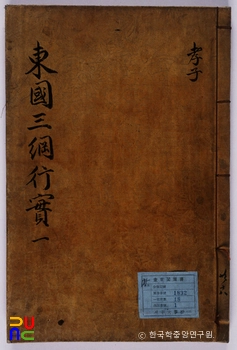 孝子
東國三綱行實 一
PUNC
ⓒ 한국학중앙연구원